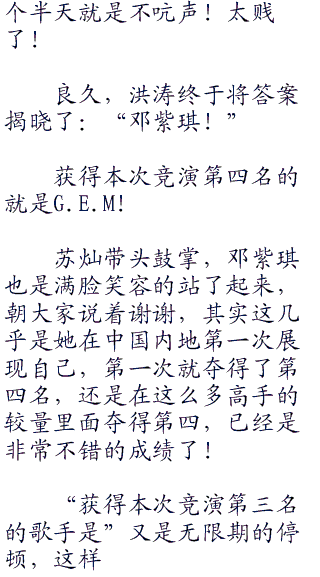 个半天就是不吭声！太贱
了！
良久，洪涛终于将答案
揭晓了：“邓紫琪！”
获得本次竞演第四名的
就是G.E.M！
苏灿带头鼓掌，邓紫琪
也是满脸笑容的站了起来，
朝大家说着谢谢，其实这几
乎是她在中国内地第一次展
现自己，第一次就夺得了第
四名，还是在这么多高手的
较量里面夺得第四，已经是
非常不错的成绩了！
“获得本次竞演第三名
的歌手是”又是无限期的停
顿，这样